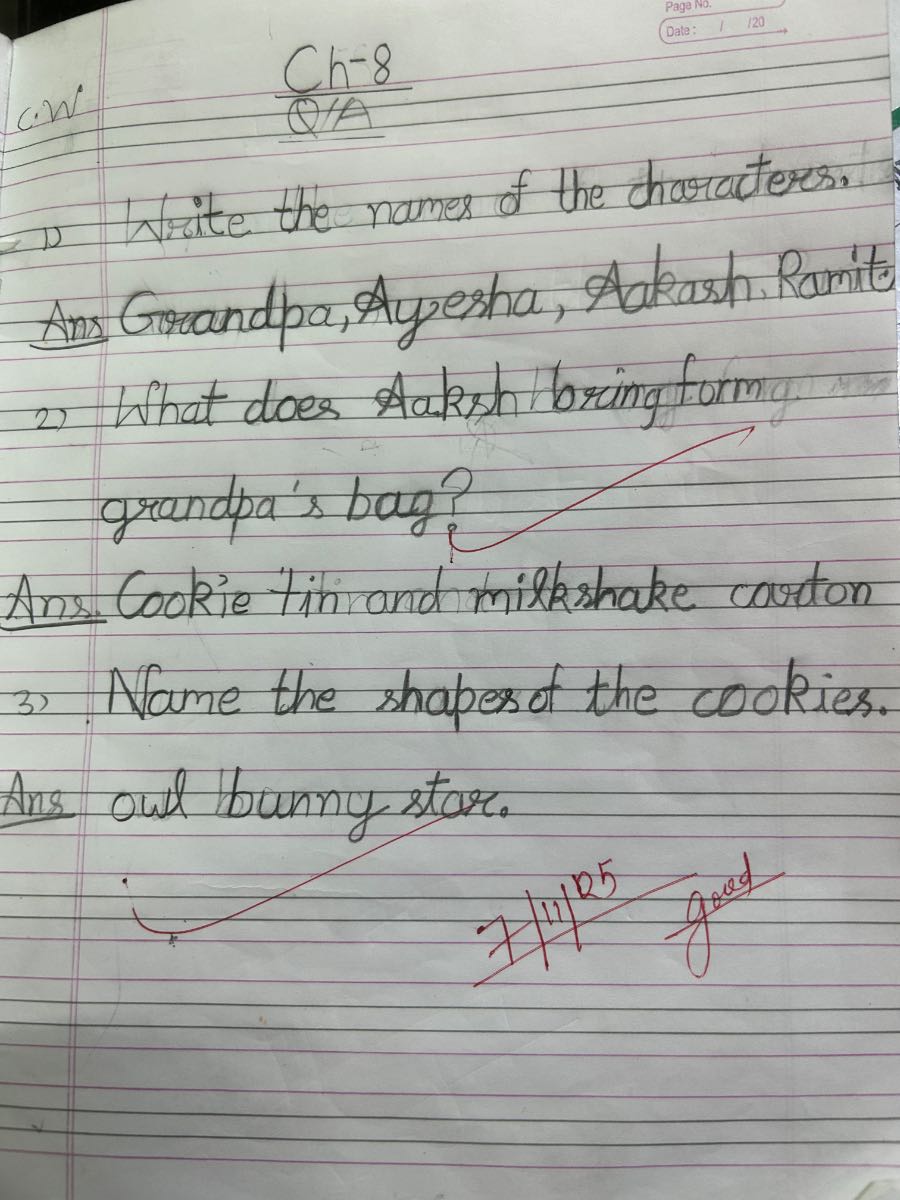 Page No.
Date: / /20
Ch-8
C.W
Q/A
1) Write the names of the characters.
Ans Grandpa, Ayesha, Aakash, Ramit
2) What does Aaksh bring form
grandpa's bag?
Ans. Cookie tin and milkshake carton
3) Name the shapes of the cookies.
Ans owl bunny star.
7/11/25 good